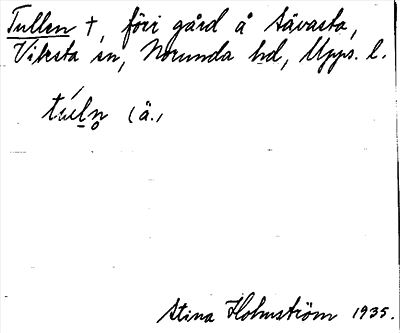 Tullen †, förr gård å Sävasta,
Viksta sn, Norunda hd, Upps. l.
(ä.)
Stina Holmström 1935.